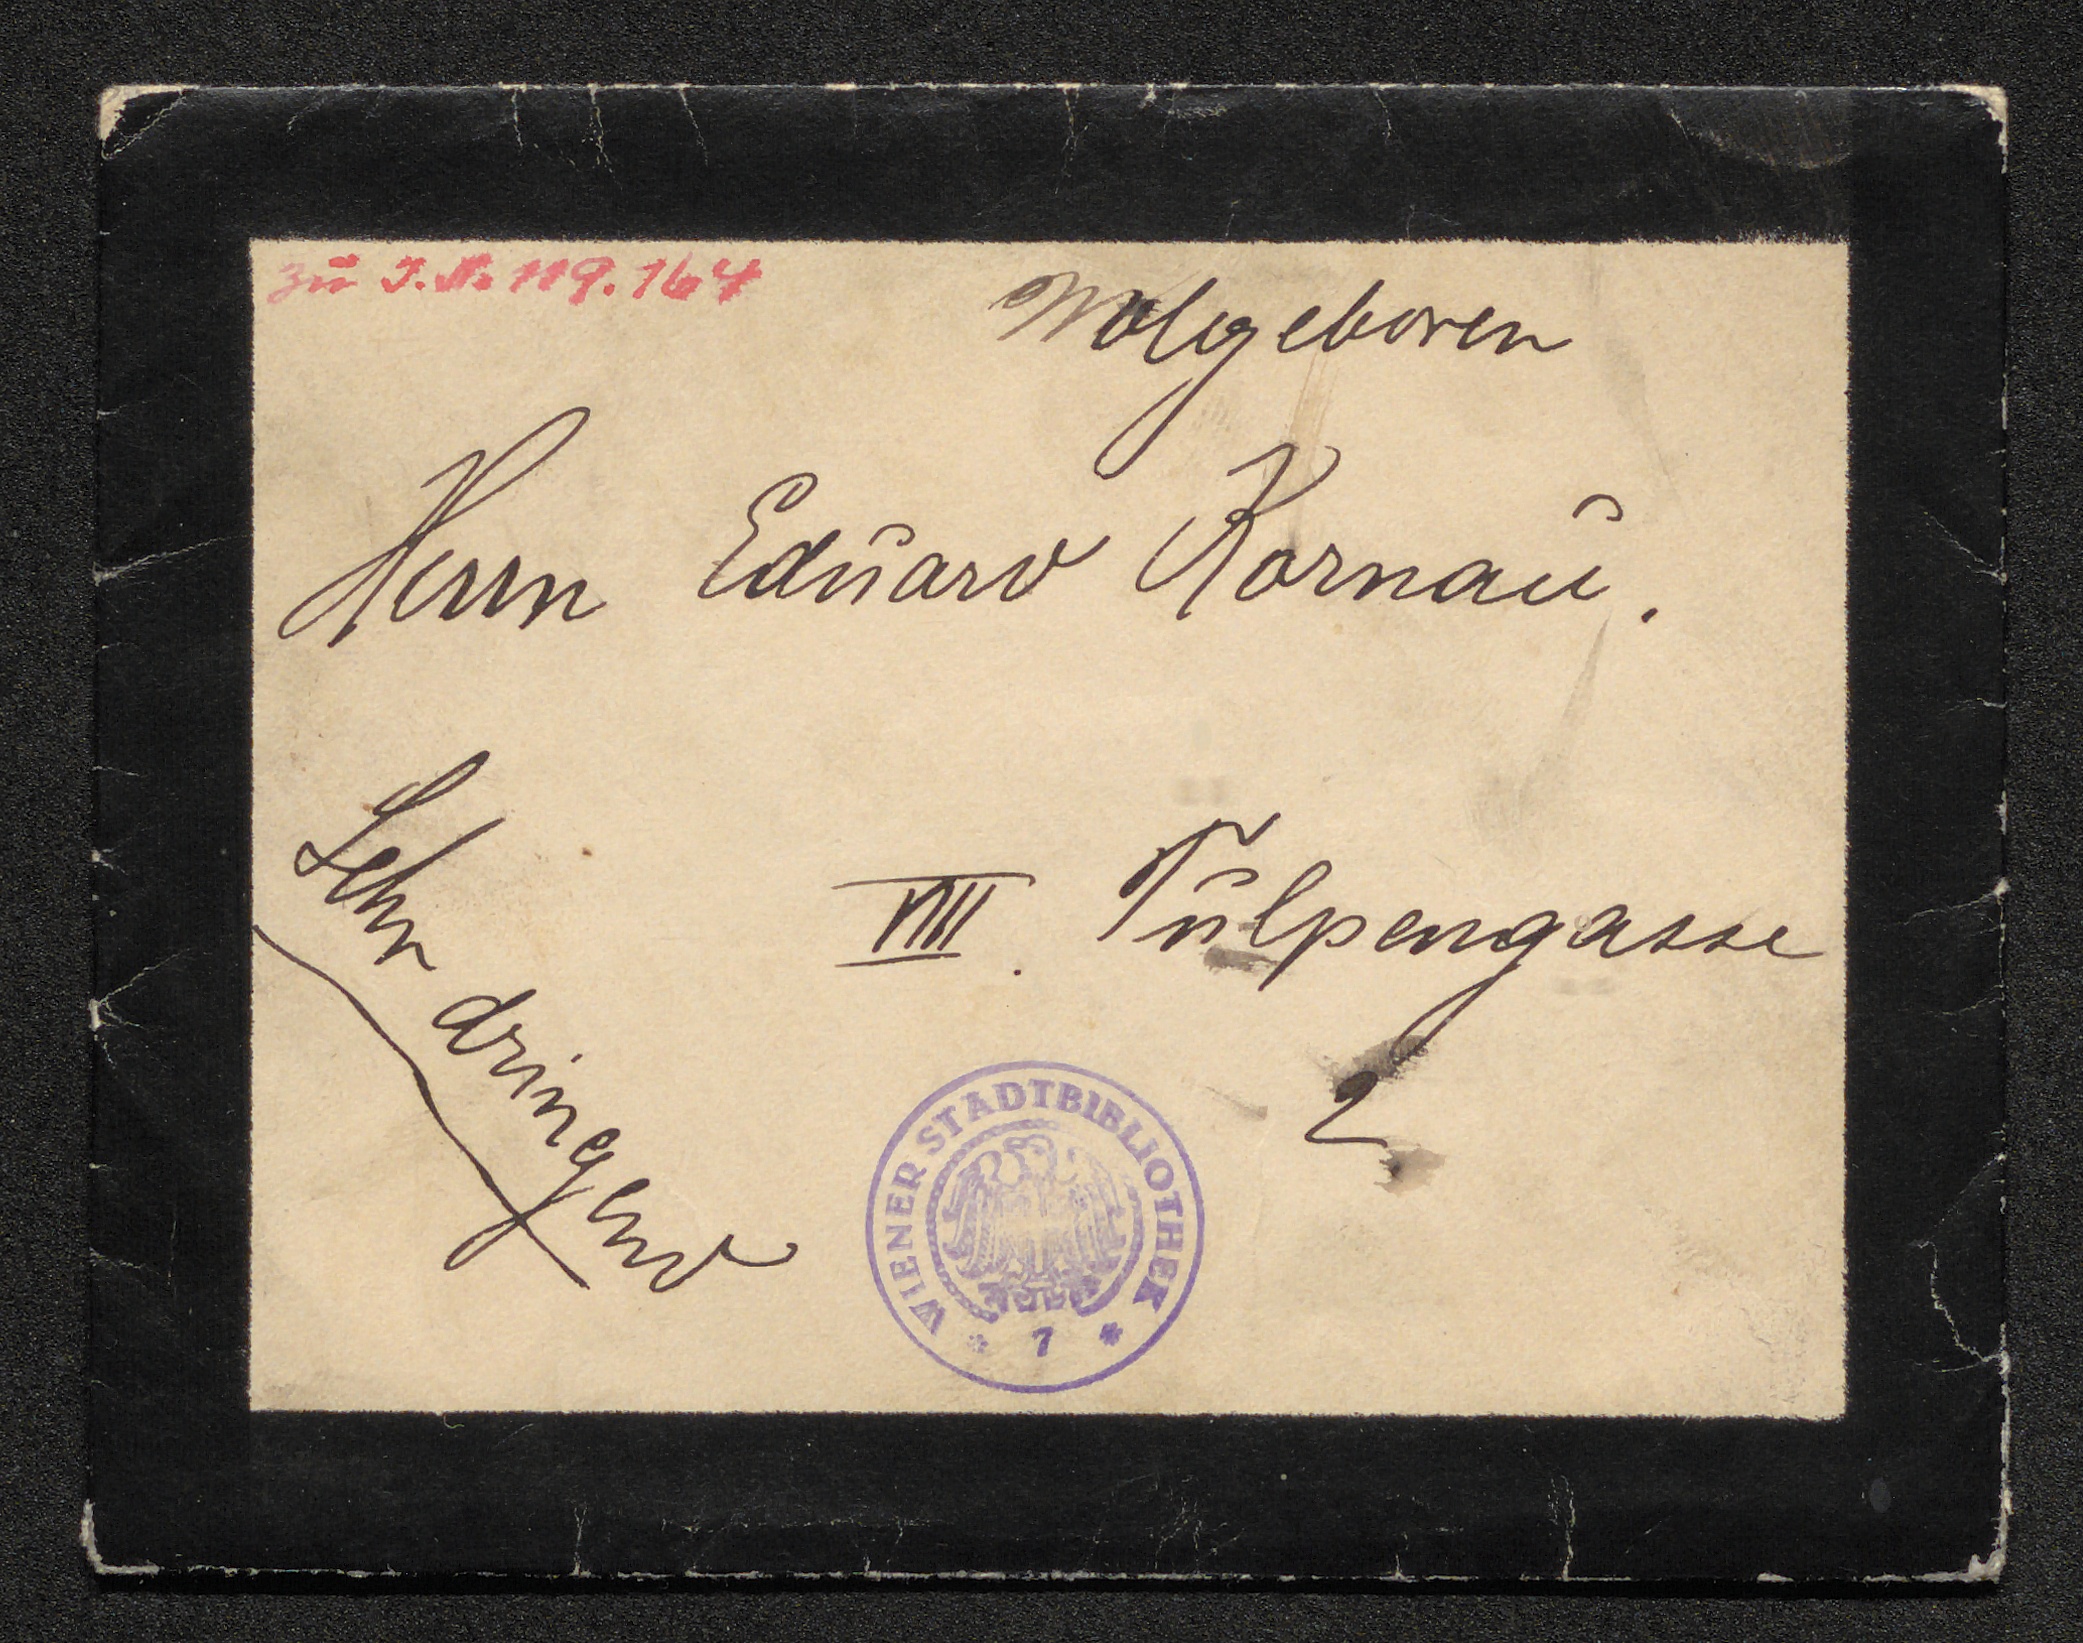 zu I.N. 119.164
Wolgeboren
Herrn Eduard Kornau.
VIII. Tulpengasse
2
Sehr dringend
WIENER STADTBIBLIOTHEK
* 7 *